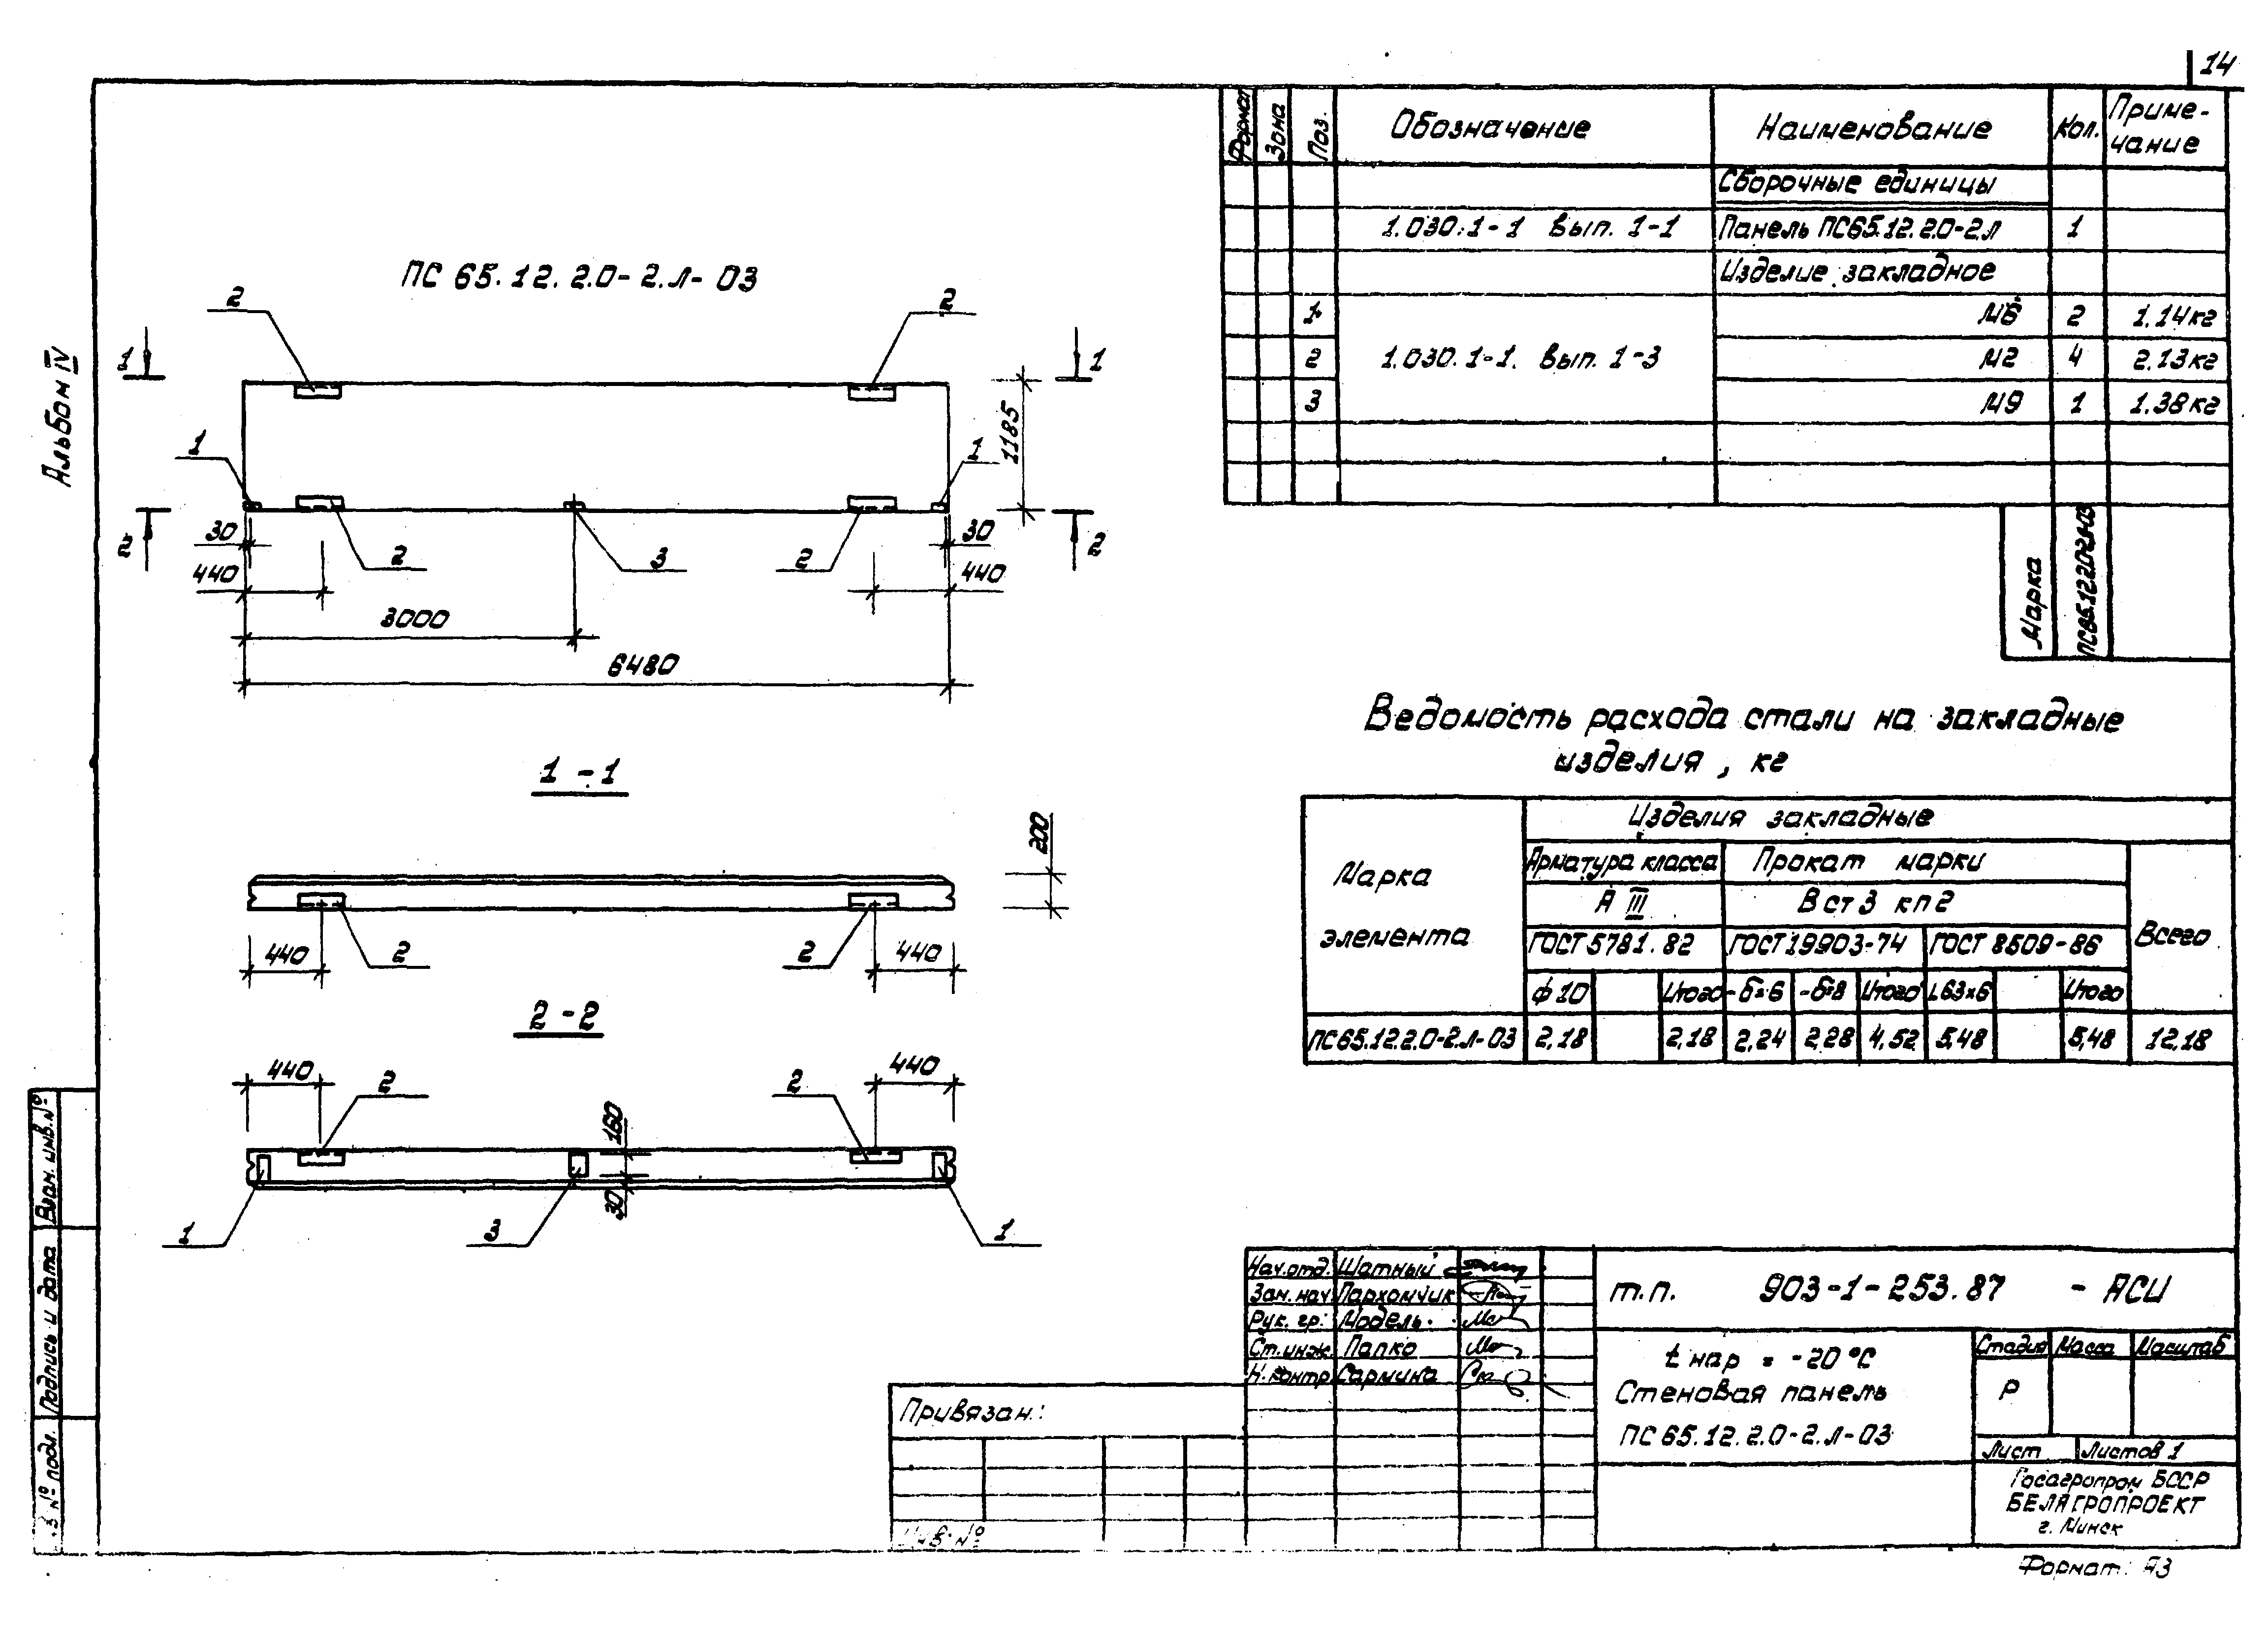 14
Альбом IV
ПС 65.12.2.0-2.л-03
2 2
1 1
1 1
1185
2 2
30 2 3 2 30
440 440
3000
6480
1-1
200
440 2 2 440
2-2
440 2 2 440
160
30
1 3 1
Формат Зона Поз. Обозначение Наименование Кол. Приме-
чание
Сборочные единицы
1.030.1-1 вып. 1-1 Панель ПС65.12.2.0-2л 1
Изделие закладное
1 М6 2 1.14кг
2 1.030.1-1. вып. 1-3 М2 4 2.13кг
3 М9 1 1.38кг
Марка
Ведомость расхода стали на закладные
изделия, кг
Марка
элемента
Изделия закладные
Арматура класса Прокат марки
А III В ст 3 кп 2
ГОСТ 5781.82 ГОСТ 19903-74 ГОСТ 8509-86 Всего
ф10 Итого -δ=6 -δ=8 Итого L63x6 Итого
ПС65.12.2.0-2.л-03 2,18 2,18 2,24 2,28 4,52 5,48 5,48 12,18
Нач.отд. Шатный
Зам.нач Пархомчик
Рук. гр. Модель
Ст.инж. Папко
Н.контр Сармина
т.п. 903-1-253.87 - АСИ
t нар = -20°С
Стеновая панель
ПС 65.12.2.0-2.л-03
Стадия Масса Масштаб
Р
Лист Листов 1
Госагропром БССР
БЕЛАГРОПРОЕКТ
г. Минск
Привязан:
Инв. №
Взам. инв. №
Подпись и дата
№ подл.
Формат: А3